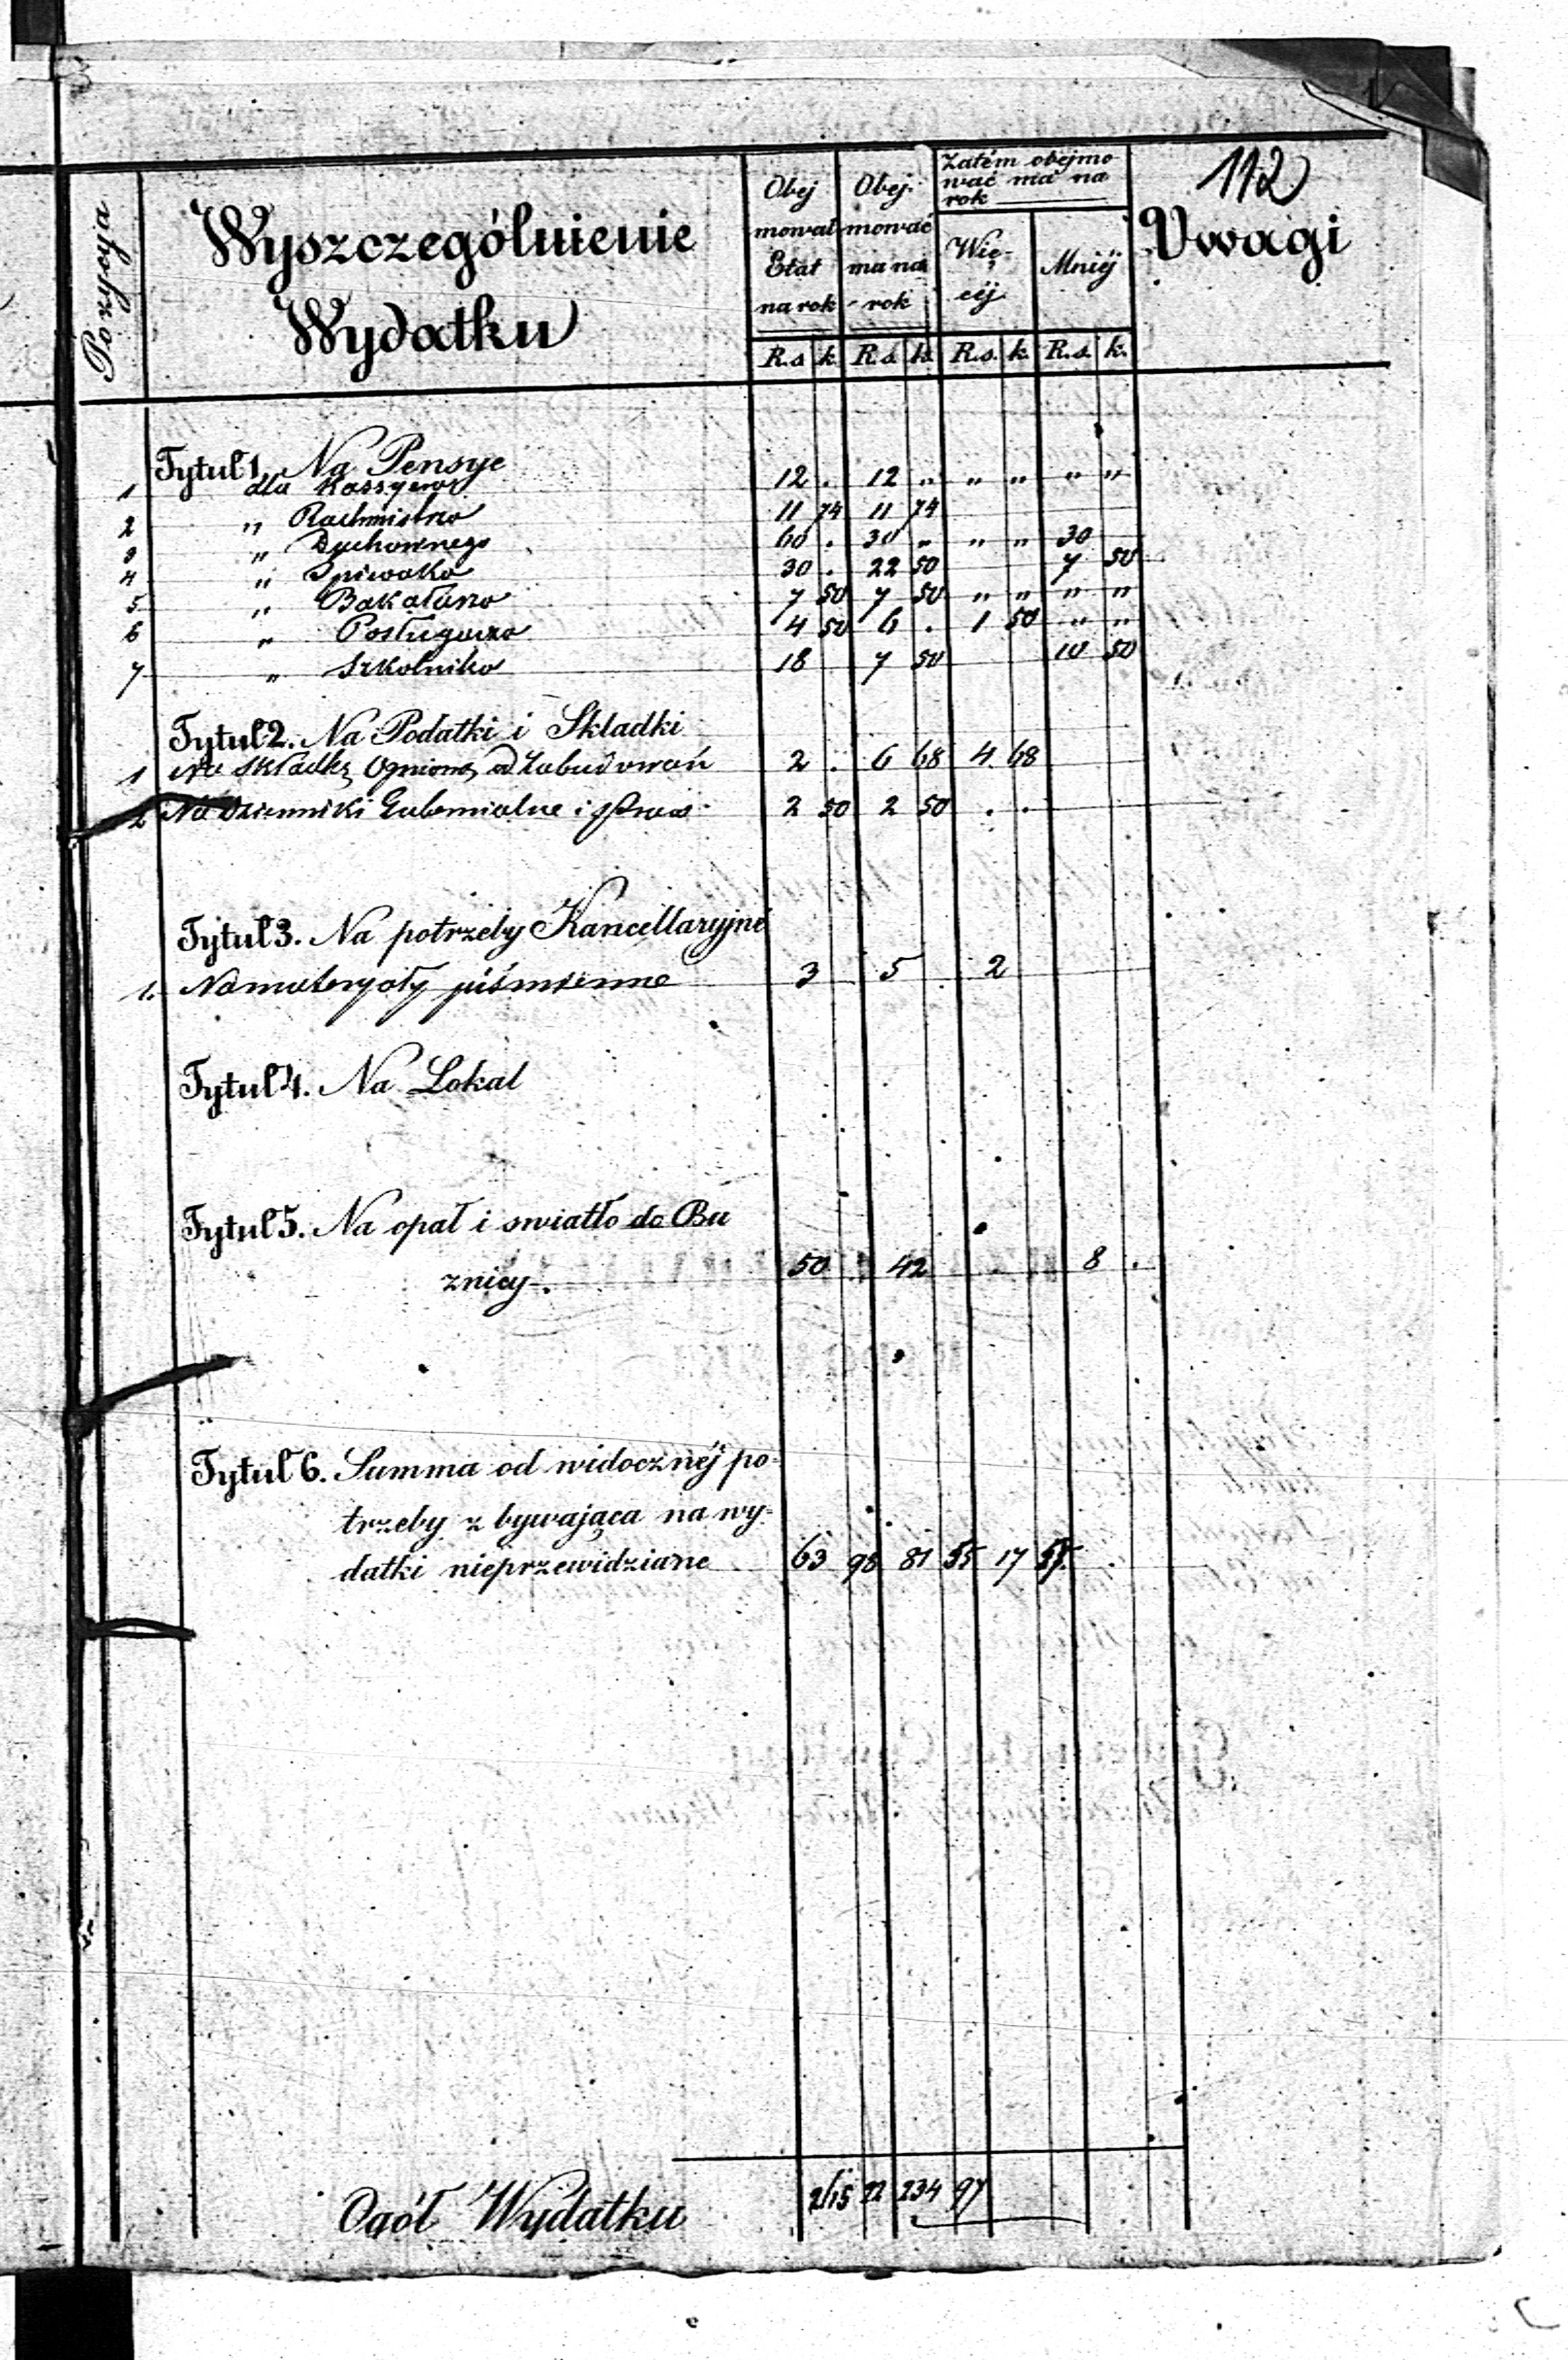 112
Pozycyja
Wyszczególnienie
Wydatku
Obej
mował
Etat
na rok
Obej.
mować
ma na
rok
Zatém obejmo
wać ma na
rok
Wię-
céj
Mniéj
Uwagi
R.s k. R.s k. R.s. k. R.s. k.
Tytuł 1. Na Pensye
1 dla Kassyera 12 . 12 „ „ „ „ „
2 „ Rachmistrza 11 74 11 74
3 „ Duchownego 60 . 30 „ „ „ 30
4 „ Spiewaka 30 . 22 50 7 50
5 „ Bakałarza 7 50 7 50 „ „ „ „
6 „ Posługacza 4 50 6 . 1 50 „ „
7 „ Szkolnika 18 7 50 10 50
Tytuł 2. Na Podatki i Składki
1 Na Składkę Ogniową od Zabudowań 2 . 6 68 4 68
2 Na Dzienniki Gubernialne i Praw 2 50 2 50 . .
Tytuł 3. Na potrzeby Kancellaryjne
1. Na materyały piśmienne 3 5 2
Tytuł 4. Na Lokal
Tytuł 5. Na opał i swiatło do Bu
znicy 50 42 8 .
Tytuł 6. Summa od widocznéj po-
trzeby zbywająca na wy-
datki nieprzewidziane 63 98 81 55 17 57.
Ogół Wydatku 22 234 97